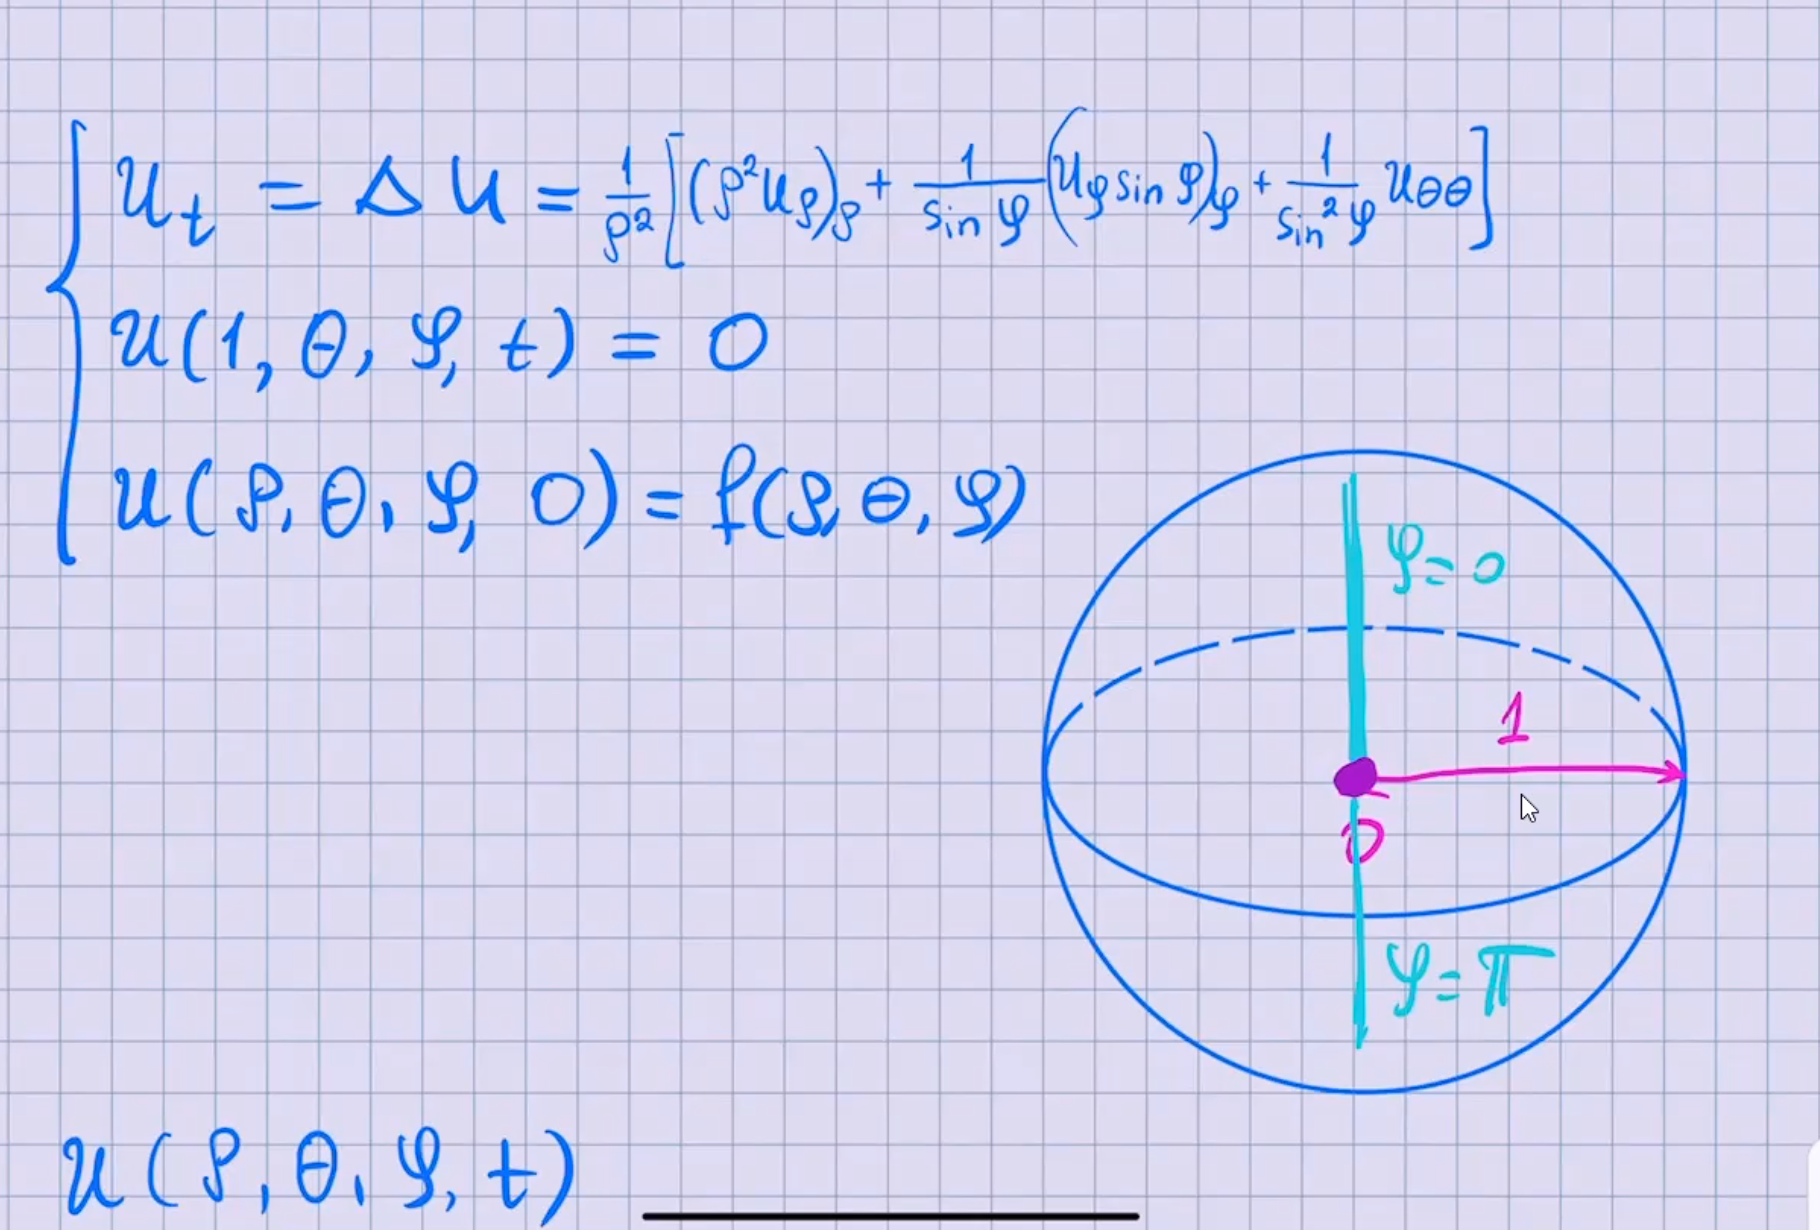 u_t = Δu = 1/ρ² [(ρ²u_ρ)_ρ + 1/sin φ (u_φ sin φ)_φ + 1/sin²φ u_θθ]
u(1, θ, φ, t) = 0
u(ρ, θ, φ, 0) = f(ρ, θ, φ)
φ = 0
1
0
φ = π
u(ρ, θ, φ, t)